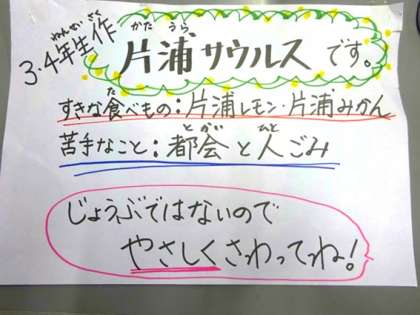 3・4年生作
ねんせいさく
かたうら
片浦サウルスです。
た
すきな食べもの：片浦レモン・片浦みかん
とかい ひと
苦手なこと：都会と人ごみ
じょうぶではないので
やさしくさわってね！